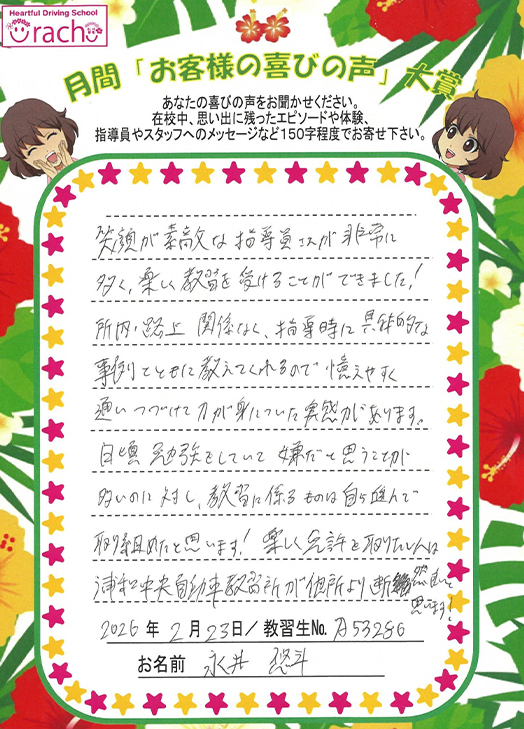 Heartful Driving School
Urachu
月間「お客様の喜びの声」大賞
あなたの喜びの声をお聞かせください。
在校中、思い出に残ったエピソードや体験、
指導員やスタッフへのメッセージなど150字程度でお寄せ下さい。
笑顔が素敵な指導員さんが非常に
多く、楽しい教習を受けることができました!
所内・路上関係なく、指導時に具体的な
事例とともに教えてくれるので憶えやすく
通いつづけて力が身についた実感があります。
日頃勉強をしていて嫌だと思うことが
多いのに対し、教習に係るものは自ら進んで
取り組めたと思います! 楽しく免許を取りたい人は
浦和中央自動車教習所が他所より断然良いと
思います!
2026年2月23日/教習生No. A53286
お名前 永井 悠斗